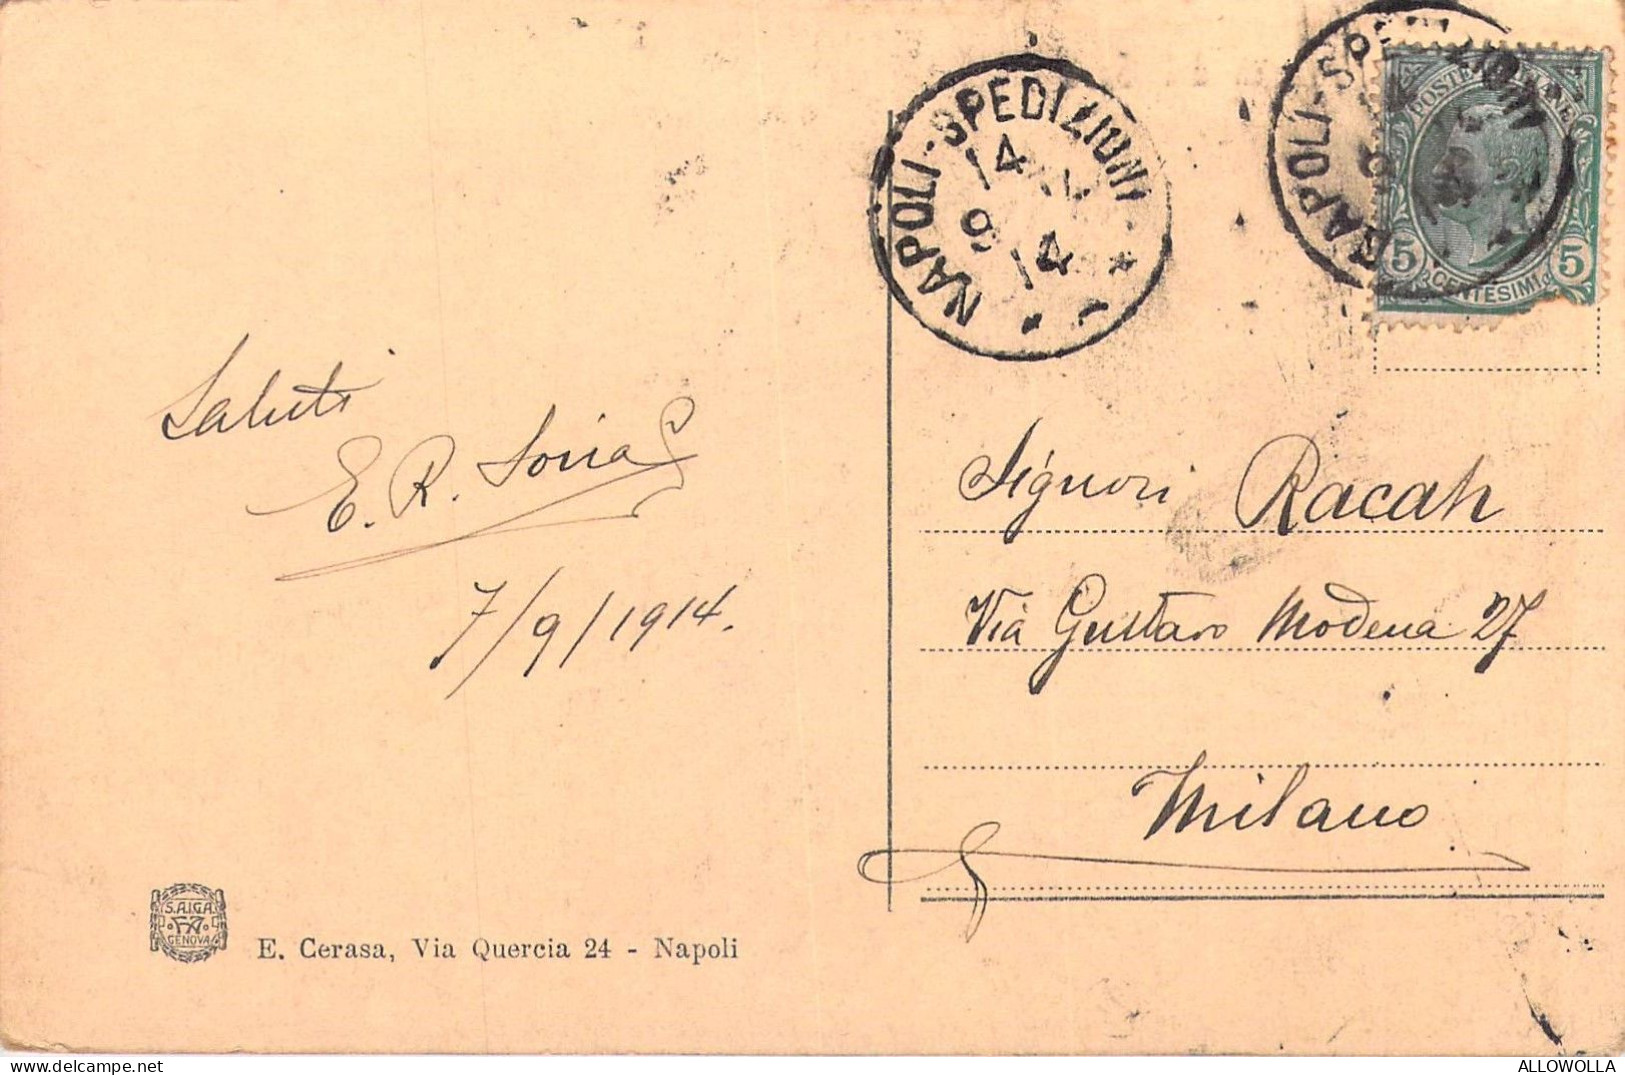 Saluti
E. R. Soria
7/9/1914.
S.A.I.G.A.
GENOVA
E. Cerasa, Via Quercia 24 - Napoli
NAPOLI-SPEDIZIONI
14
9 14
NAPOLI-SPEDIZIONI
POSTE ITALIANE
5 CENTESIMI 5
Signori Racah
Via Gustavo Modena 27
Milano
ALLOWOLLA